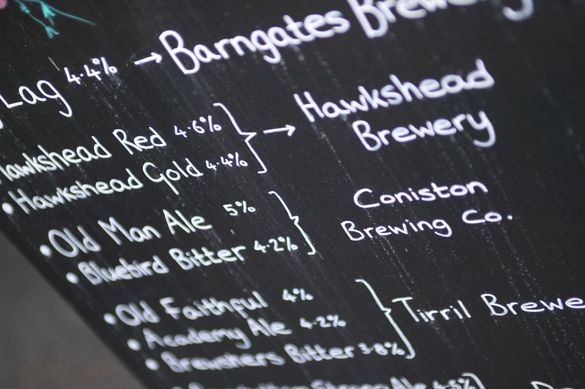 Lag 4.4% → Barngates Brewery
Hawkshead Red 4.6%
Hawkshead Gold 4.4%
→ Hawkshead
Brewery
• Old Man Ale 5%
• Bluebird Bitter 4.2%
Coniston
Brewing Co.
• Old Faithful 4%
• Academy Ale 4.2%
• Brewshers Bitter 3.8%
Tirril Brewe